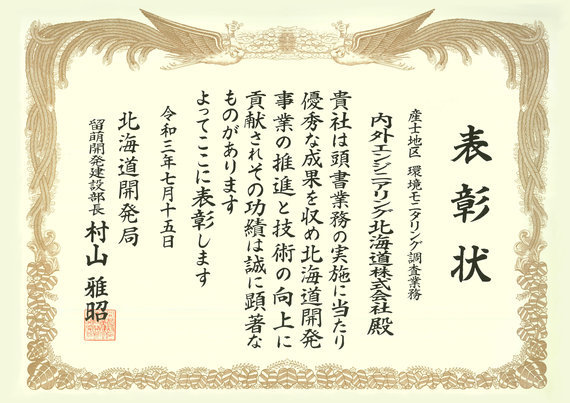 表彰状
産士地区 環境モニタリング調査業務
内外エンジニアリング北海道株式会社殿
貴社は頭書業務の実施に当たり
優秀な成果を収め北海道開発
事業の推進と技術の向上に
貢献されその功績は誠に顕著な
ものがあります
よってここに表彰します
令和三年七月十五日
北海道開発局
留萌開発建設部長 村山 雅昭